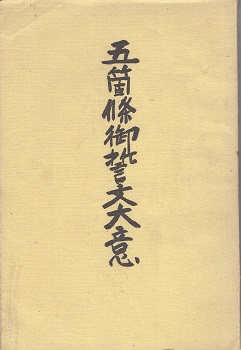 五箇條御誓文大意